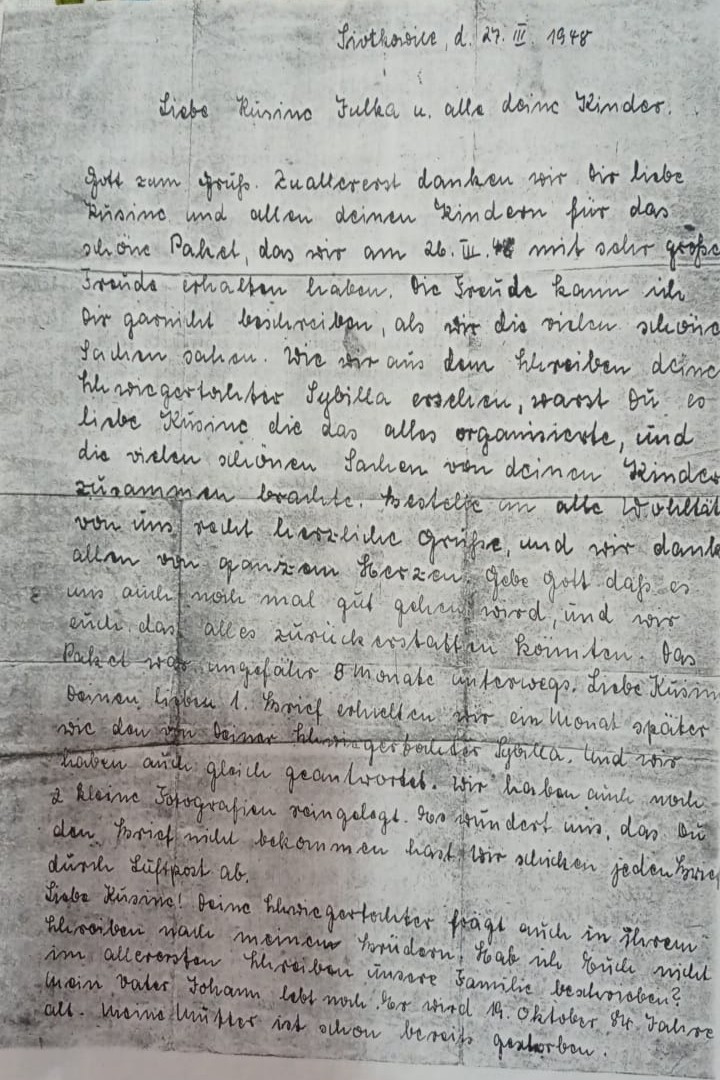 Siotkowice, d. 27. III. 1948
Liebe Kusine Julka u. alle deine Kinder.
Gott zum Gruß. Zuallererst danken wir Dir liebe
Kusine und allen deinen Kindern für das
schöne Paket, das wir am 26. III. 48 mit sehr große
Freude erhalten haben. Die Freude kann ich
Dir garnicht beschreiben, als wir die vielen schöne
Sachen sahen. Wie wir aus dem Schreiben deine
Schwiegertochter Sybilla ersehen, warst Du es
liebe Kusine die das alles organisierte, und
die vielen schönen Sachen von deinen Kinder
zusammen brachte. Bestelle an alle Wohltät
von uns recht herzliche Grüße, und wir dank
allen von ganzem Herzen. Gebe Gott daß es
uns auch noch mal gut gehen wird, und wir
euch das alles zurückerstatten könnten. Das
Paket war ungefähr 8 Monate unterwegs. Liebe Kusin
Deinen lieben 1. Brief erhielten wir ein Monat später
wie den von Deiner Schwiegertochter Sybilla. Und wir
haben auch gleich geantwortet. Wir haben auch noch
2 kleine Fotografien reingelegt. Es wundert uns, das Du
den Brief nicht bekommen hast. Wir schicken jeden Brie
durch Luftpost ab.
Liebe Kusine! Deine Schwiegertochter frägt auch in Ihrem
Schreiben nach meinem Brüdern. Hab ich Euch nicht
im allerersten Schreiben unsere Familie beschrieben?
Mein Vater Johann lebt noch. Er wird 19. Oktober 84 Jahre
alt. Meine Mutter ist schon bereits gestorben.